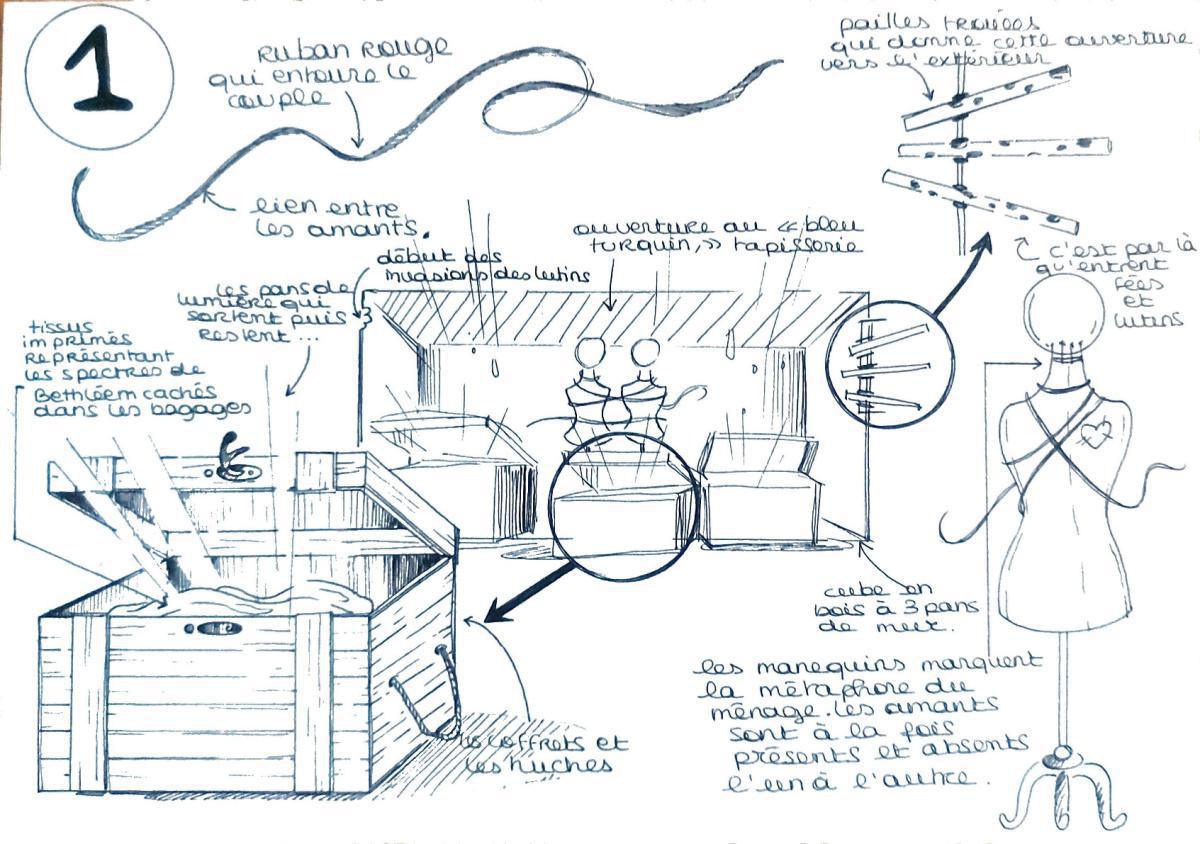 1
Ruban Rouge
qui entoure le
couple
pailles trouées
qui donne cette ouverture
vers l'extérieur
lien entre
les amants.
début des
invasions des lutins
ouverture au « bleu
turquin, » tapisserie
c'est par là
qu'entrent
fées
et
lutins
les pans de
lumière qui
sortent puis
restent ...
tissus
imprimés
représentant
les spectres de
Bethléem cachés
dans les bagages
cube en
bois à 3 pans
de mur.
les manequins marquent
la métaphore du
ménage. les amants
sont à la fois
présents et absents
l'un à l'autre.
les coffrets et
les huches